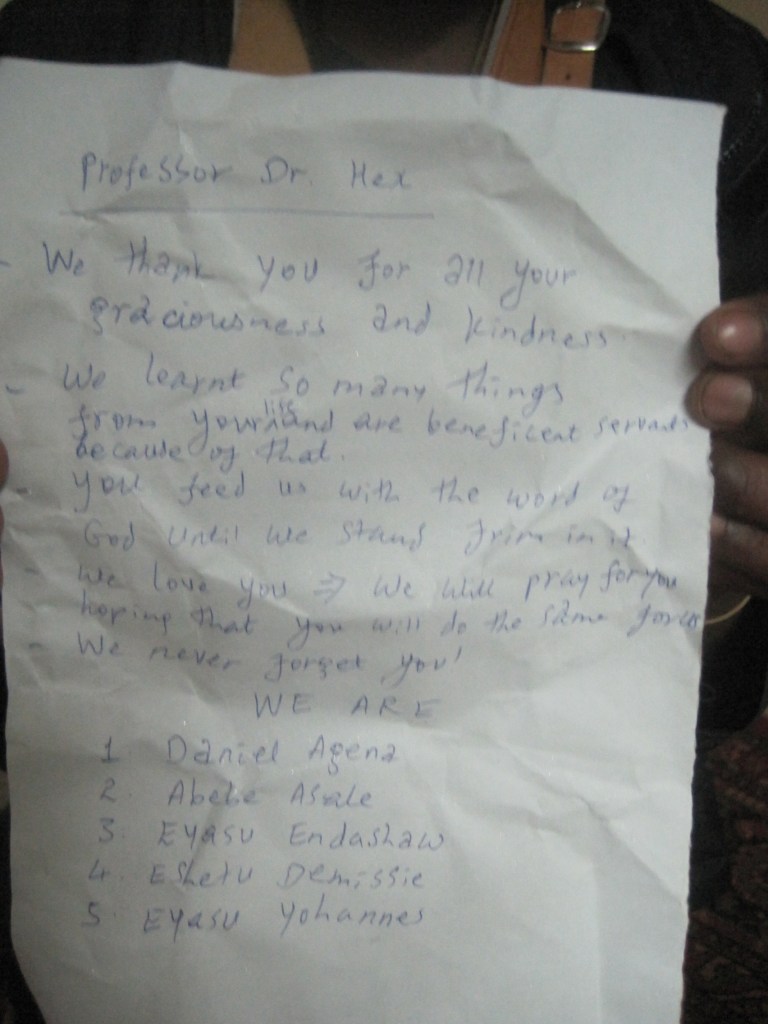 Professor Dr. Hex
- We thank you for all your
graciousness and kindness.
- We learnt so many things
from your life and are beneficent servants
because of that.
- You feed us with the word of
God until we stand frim in it.
- We love you => We will pray for you
hoping that you will do the same for us
- We never forget you!
WE ARE
1 Daniel Agena
2. Abebe Asale
3. Eyasu Endashaw
4. Eshetu Demissie
5. Eyasu Yohannes